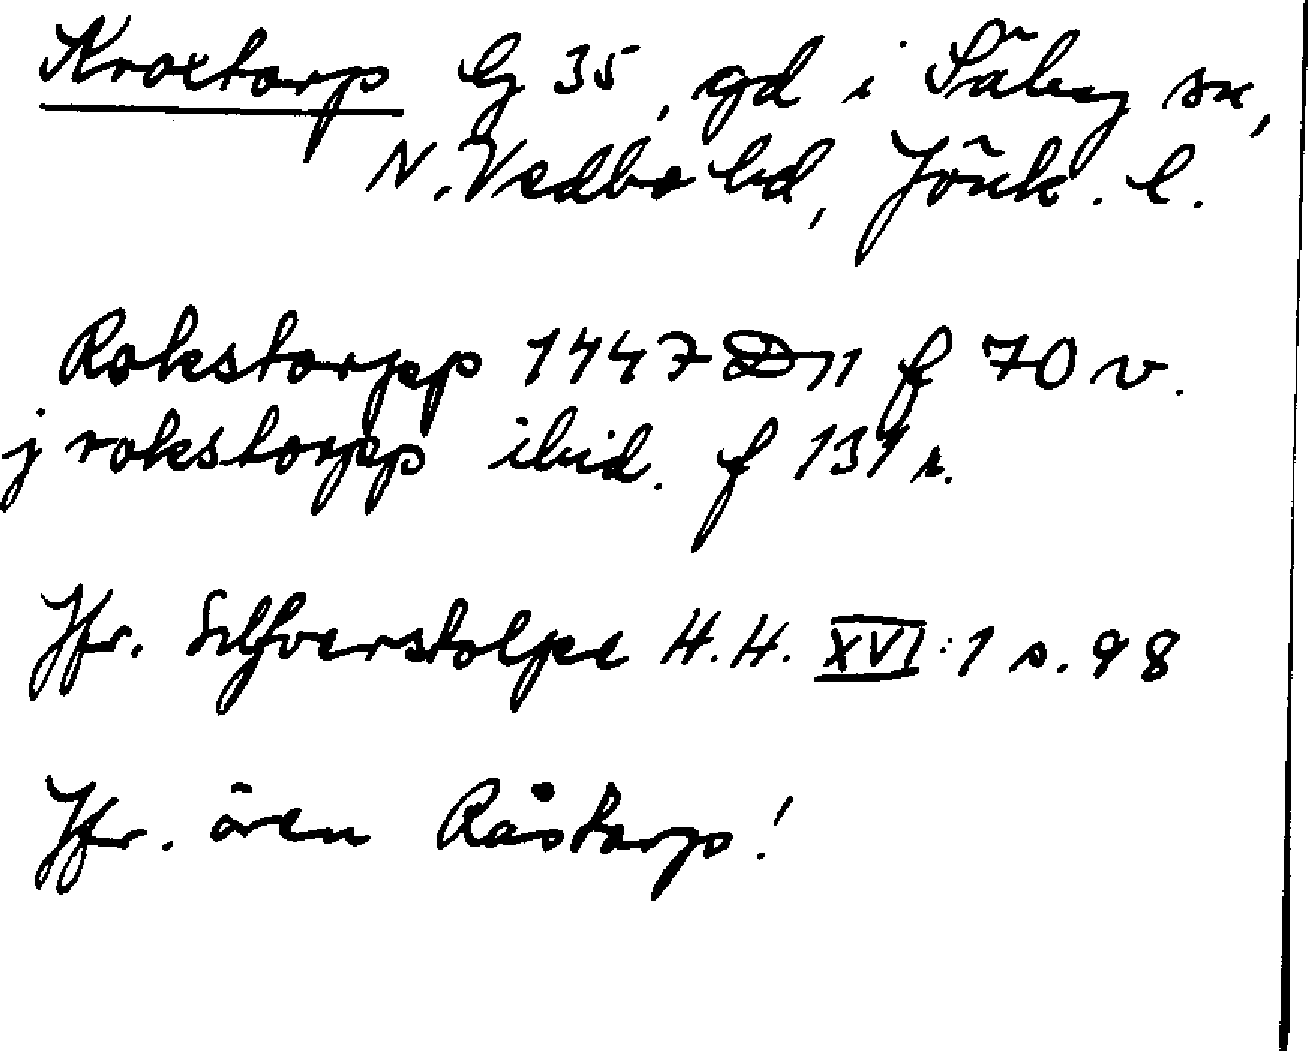 Kroxtorp G 35, gd i Säby sn,
N. Vedbo hd, Jönk. l.
Rokstorpp 1447 D 11 f 70 v.
j rokstorpp ibid. f 131 r.
Jfr. Silfverstolpe H.H. XVI:1 s. 98
Jfr. även Råstorp!